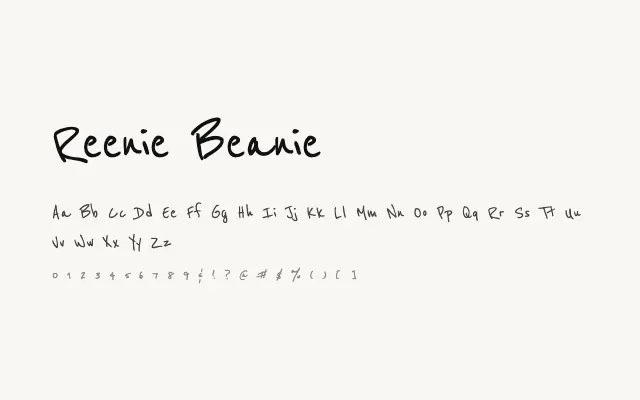 Reenie Beanie
Aa Bb Cc Dd Ee Ff Gg Hh Ii Jj Kk Ll Mm Nn Oo Pp Qq Rr Ss Tt Uu
Vv Ww Xx Yy Zz
0 1 2 3 4 5 6 7 8 9 & ! ? @ # $ % ( ) [ ]